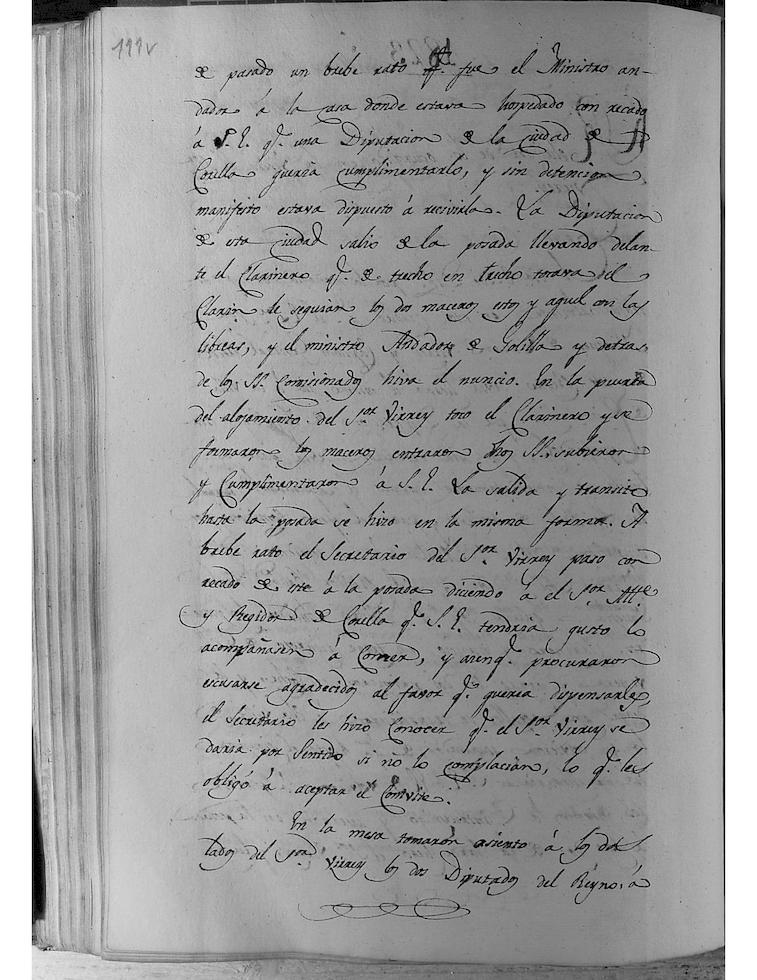 111v
de pasado un brebe rato qe. fue el Ministro an-
dador á la casa donde estava hospedado con recado
á S. E. q.e una Diputacion de la ciudad de
Corella queria cumplimentarlo, y sin detencion
manifesto estava dispuesto á recivirla. La Diputacion
de esta ciudad salio de la posada llevando delan-
te el Clarinero q.e de trecho en trecho tocava del
Clarin le seguian los dos maceros estos y aquel con las
libreas, y el ministro Andador de Golilla y detras
de los SS. Comisionados hiva el nuncio. En la puerta
del alojamiento del S.or Virrey toco el Clarinero y se
formaron los maceros entraron dhos SS. subieron
y Cumplimentaron á S. E. La salida y transito
hasta la posada se hizo en la misma forma. A
brebe rato el Secretario del S.or Virrey paso con
recado de este á la posada diciendo á el S.or Alc.e
y Regidor de Corella q.e S. E. tendria gusto lo
acompañasen á Comer, y aunq.e procuraron
escusarse agradecidos al favor q.e queria dispensarles,
el Secretario les hizo Conocer q.e el S.or Virrey se
daria por Sentido si no lo complacian, lo q.e les
obligó á aceptar el Convite.
En la mesa tomaron asiento á los dos
lados del S.or Virrey los dos Diputados del Reyno, á